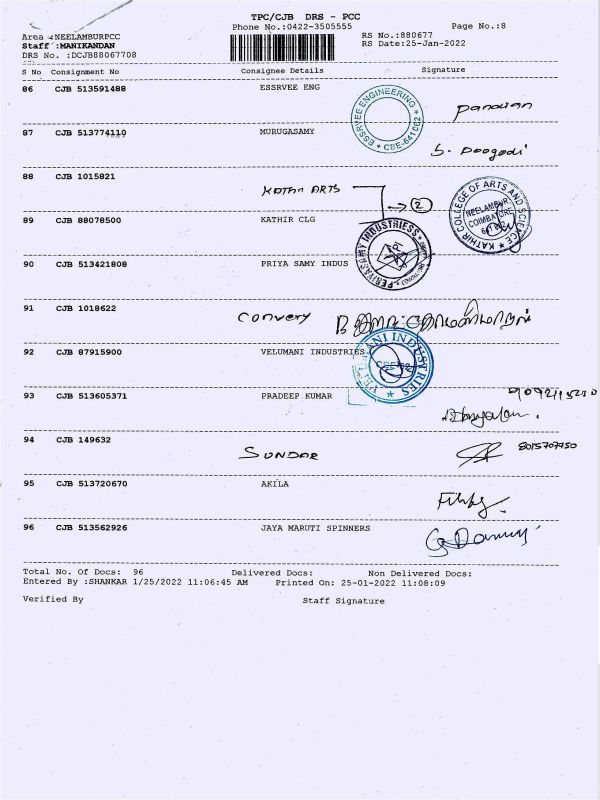 TPC/CJB DRS - PCC
Phone No.:0422-3505555
Page No.:8
Area :NEELAMBURPCC
Staff :MANIKANDAN
DRS No. :DCJB88067708
RS No.:880677
RS Date:25-Jan-2022
S No Consignment No Consignee Details Signature
86 CJB 513591488 ESSRVEE ENG
ESSRVEE ENGINEERING * CBE-641 062 *
87 CJB 513774110 MURUGASAMY
88 CJB 1015821
KATHIR ARTS
→ 2
KATHIR COLLEGE OF ARTS AND SCIENCE * NEELAMBUR COIMBATORE
89 CJB 88078500 KATHIR CLG
90 CJB 513421808 PRIYA SAMY INDUS
91 CJB 1018622
convery
92 CJB 87915900 VELUMANI INDUSTRIES
VELUMANI INDUSTRIES
93 CJB 513605371 PRADEEP KUMAR
94 CJB 149632
SUNDAR
8015707750
95 CJB 513720670 AKILA
96 CJB 513562926 JAYA MARUTI SPINNERS
Total No. Of Docs: 96 Delivered Docs: Non Delivered Docs:
Entered By :SHANKAR 1/25/2022 11:06:45 AM Printed On: 25-01-2022 11:08:09
Verified By Staff Signature